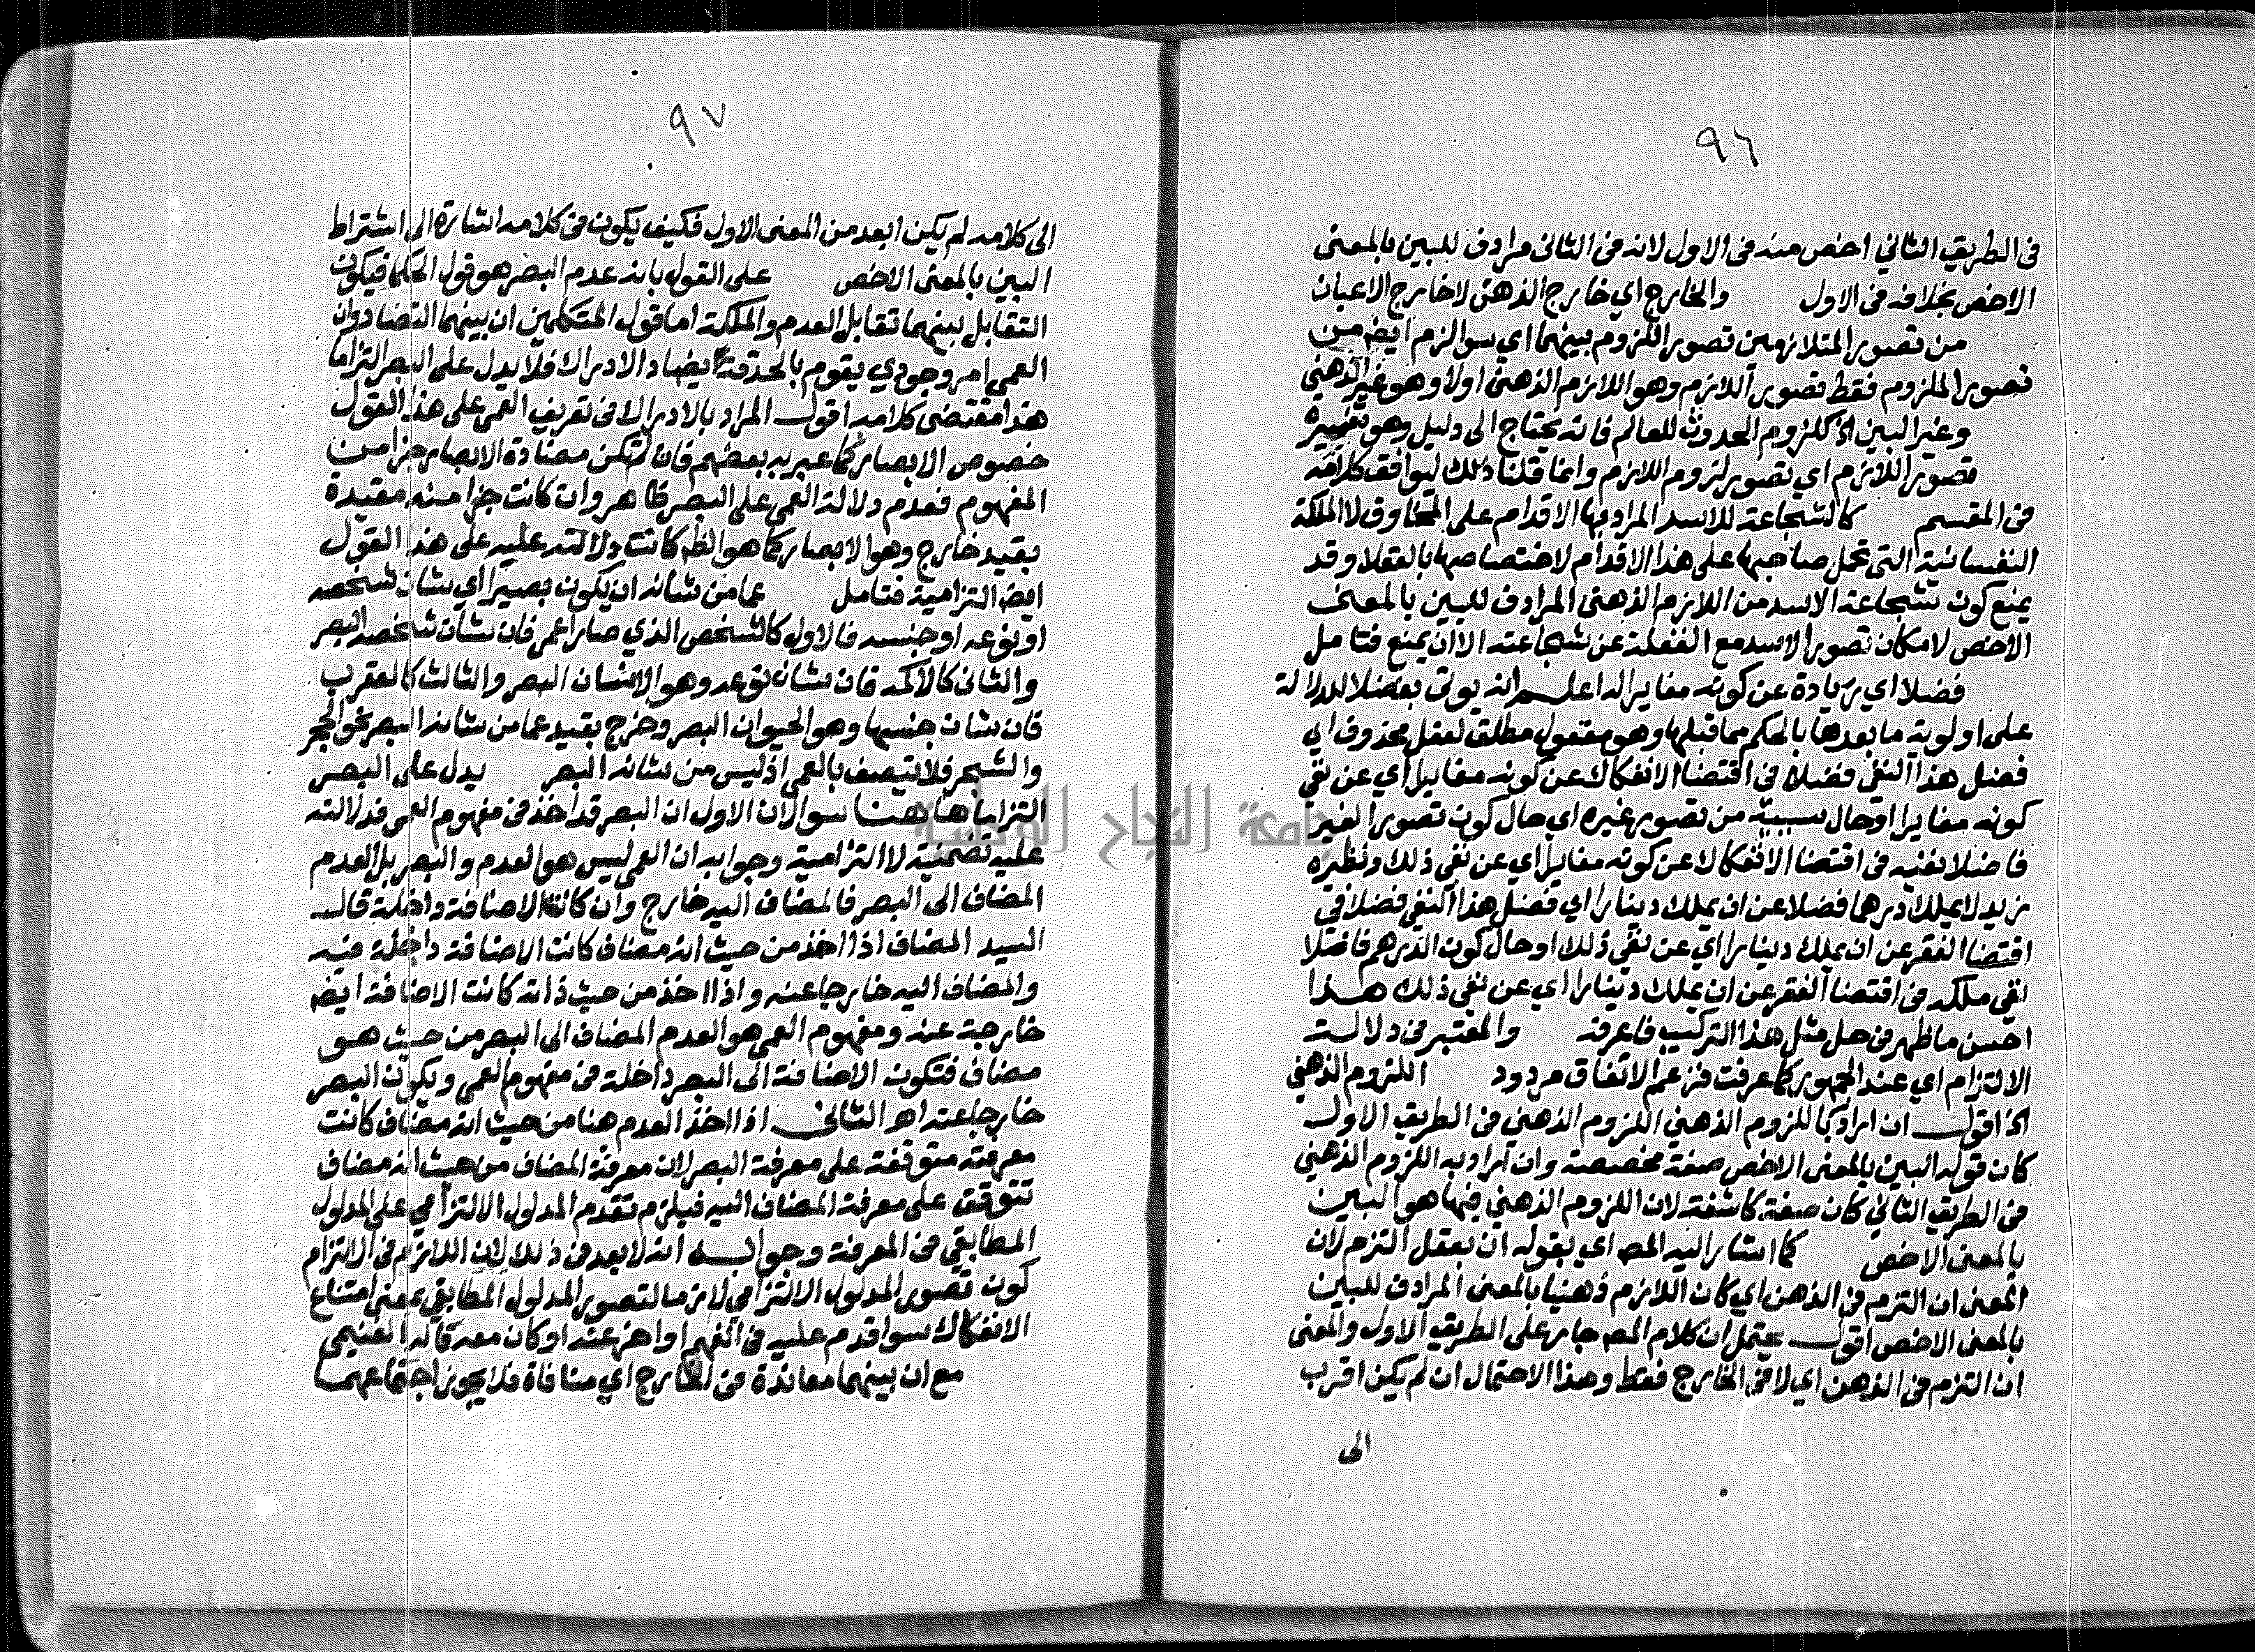 ٩٦
فى الطريق الثاني اخص منه فى الاول لانه فى الثانى مرادف للبين بالمعنى
الاخص بخلافه فى الاول والخارج اي خارج الذهن لا خارج الاعيان
من تصور المتلازمين تصور اللزوم بينهما اي سوا لزم ايضا من
تصور الملزوم فقط تصور اللازم وهو اللازم الذهنى اولا وهو غير الذهني
وغير البين الخ كلزوم الحدوث للعالم فانه يحتاج الى دليل وهو تغييره
تصور اللازم اي تصور لزوم اللازم وانما قلنا ذلك ليوافق كلامه
فى المقسم كالشجاعة للاسد المراد بها الاقدام على المخاوف لا الملكة
النفسانية التى تحمل صاحبها على هذا الاقدام لاختصاصها بالعقلا وقد
يمنع كون شجاعة الاسد من اللازم الذهنى المرادف للبين بالمعنى
الاخص لامكان تصور الاسد مع الغفلة عن شجاعته الا ان يمنع فتامل
فضلا اي زيادة عن كونه مغايرا اعلم انه يوتى بفضلا للدلالة
على اولوية ما بعدها بالحكم مما قبلها وهو مفعول مطلق لفعل محذوف اي
فضل هذا النفى فضلا فى اقتضا الانفكاك عن كونه مغايرا اي عن نفي
كونه مغايرا او حال سببية من تصور غيره اي حال كون تصور الغير
فاضلا نفيه فى اقتضا الانفكاك عن كونه مغايرا اي عن نفي ذلك ونظيره
زيد لا يملك درهما فضلا عن ان يملك دينارا اي فضل هذا النفي فضلا في
اقتضا الفقر عن ان يملك دينارا اي عن نفي ذلك او حال كون الدرهم فاضلا
نفي ملكه فى اقتضا الفقر عن ان يملك دينارا اي عن نفي ذلك هذا
احسن ما ظهر فى حل مثل هذا التركيب فاعرفه والمعتبر فى دلالة
الالتزام اي عند الجمهور كما عرفت فزعم الاتفاق مردود اللزوم الذهني
الخ اقول ان اراد باللزوم الذهني اللزوم الذهني فى الطريق الاول
كان قوله البين بالمعنى الاخص صفة مخصصة وان اراد به اللزوم الذهني
فى الطريق الثاني كان صفة كاشفة لان اللزوم الذهني فيها هو البين
بالمعنى الاخص كما اشار اليه المص اي بقوله ان بعقل التزم لان
المعنى ان التزم فى الذهن اي كان اللازم ذهنيا بالمعنى المرادف للبين
بالمعنى الاخص اقول يحتمل ان كلام المص جار على الطريق الاول والمعنى
ان التزم فى الذهن اي لا فى الخارج فقط وهذا الاحتمال ان لم يكن اقرب
الى
٩٧
الى كلامه لم يكن ابعد من المعنى الاول فكيف يكون فى كلامه اشارة الى اشتراط
البين بالمعنى الاخص على القول بانه عدم البصر هو قول الحكما فيكون
التقابل بينهما تقابل العدم والملكة اما قول المتكلمين ان بينهما التضاد وان
العمى امر وجودي يقوم بالحدقة يضاد الادراك فلا يدل على البصر التزاما
هذا مقتضى كلامه اقول المراد بالادراك فى تعريف العمى على هذا القول
خصوص الابصار كما عبر به بعضهم فان لم تكن مضادة الابصار جزا من
المفهوم فعدم دلالة العمى على البصر ظاهر وان كانت جزا منه مقيدة
بقيد خارج وهو الابصار كما هو الظم كانت دلالته عليه على هذا القول
ايضا التزامية فتامل عما من شانه ان يكون بصيرا اي شان شخصه
او نوعه او جنسه فالاول كالشخص الذي صار اعمى فان شان شخصه البصر
والثانى كالاكمه فان شان نوعه وهو الانسان البصر والثالث كالعقرب
فان شان جنسها وهو الحيوان البصر وخرج بقيد عما من شانه البصر نحو الحجر
والشجر فلا يتصف بالعمى اذ ليس من شانه البصر يدل على البصر
التزاما هاهنا سوالان الاول ان البصر قد اخذ فى مفهوم العمى فدلالته
عليه تضمنية لا التزامية وجوابه ان العمى ليس هو العدم والبصر بل العدم
المضاف الى البصر فالمضاف اليه خارج وان كانت الاضافة داخلة قال
السيد المضاف اذا اخذ من حيث انه مضاف كانت الاضافة داخلة فيه
والمضاف اليه خارجا عنه واذا اخذ من حيث ذاته كانت الاضافة ايضا
خارجة عنه ومفهوم العمى هو العدم المضاف الى البصر من حيث هو
مضاف فتكون الاضافة الى البصر داخلة فى مفهوم العمى ويكون البصر
خارجا عنه اهـ الثانى اذا اخذ العدم هنا من حيث انه مضاف كانت
معرفته متوقفة على معرفة البصر لان معرفة المضاف من حيث انه مضاف
تتوقف على معرفة المضاف اليه فيلزم تقدم المدلول الالتزامي على المدلول
المطابقي فى المعرفة وجوابه انه لا بعد فى ذلك لان اللازم فى الالتزام
كون تصور المدلول الالتزامي لازما لتصور المدلول المطابقي بمعنى امتناع
الانفكاك سوا قدم عليه فى الفهم او اخر عنه او كان معه قاله الغنيمى
مع ان بينهما معاندة فى الخارج اي منافاة فلا يجوز اجتماعهما
جامعة النجاح الوطنية